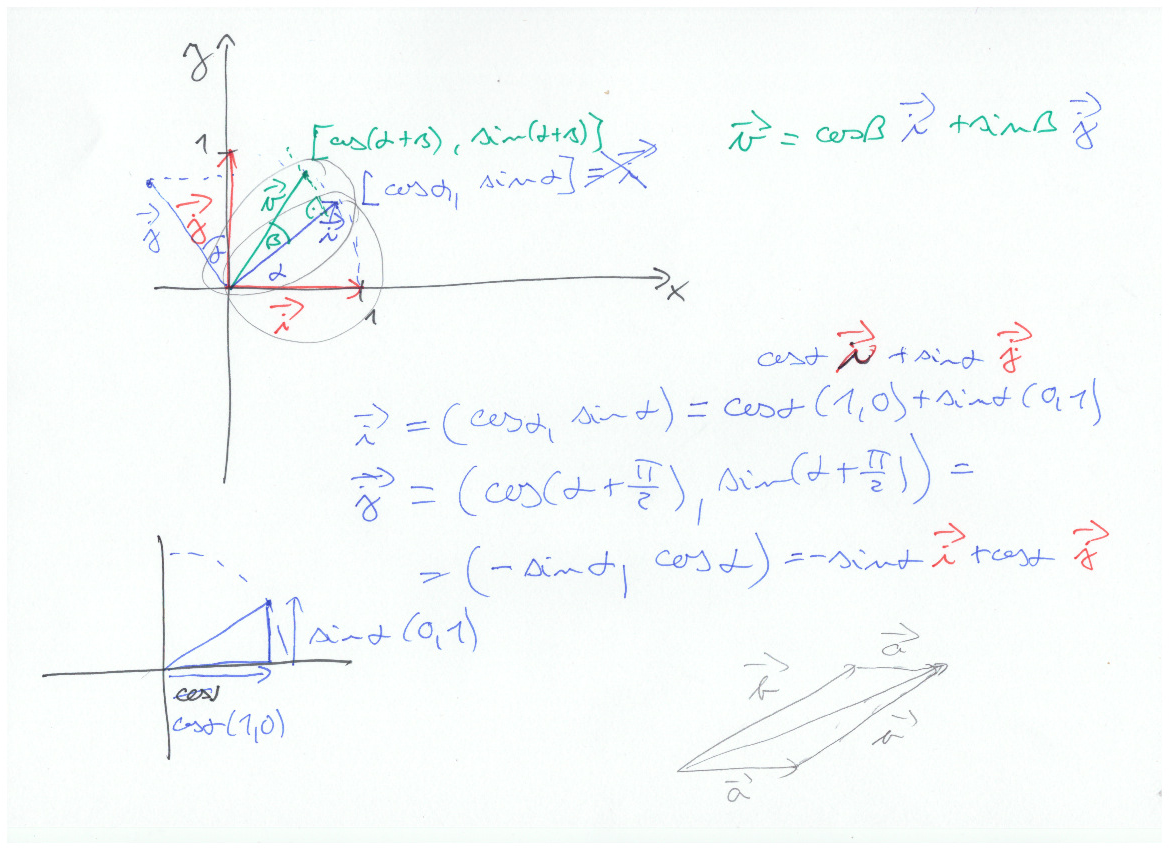 y
1
[cos(α+β), sin(α+β)]
v⃗ = cosβ i⃗ + sinβ j⃗
[cosα, sinα] = i⃗
j⃗ j⃗ v⃗ i⃗
α β
α
x
i⃗ 1
cosα i⃗ + sinα j⃗
i⃗ = (cosα, sinα) = cosα(1,0) + sinα(0,1)
j⃗ = (cos(α+π/2), sin(α+π/2)) =
= (-sinα, cosα) = -sinα i⃗ + cosα j⃗
sinα(0,1)
cos
cosα(1,0)
a⃗
b⃗
b⃗
a⃗